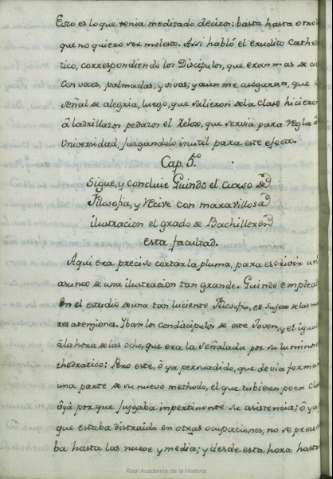 Esto es lo que tenia meditado deciros: basta hasta otro
que no quiero ser molesto. Assi habló el erudito Cathe
tico, correspondiendo los Discipulos, que eran mas de
con voces, palmadas, y vivas; y aun me aseguran, que
señal de alegria, luego, que salieron de la Clase hicieron
â ladrillazos pedazos el Relox, que servia para regla
Universidad, juzgandolo inutil para este efecto.
Cap. 5.º
Sigue, y concluie Guindo el curso de
Filosofia, y recive con maravillosa
ilustracion el grado de Bachiller en
esta facultad.
Aqui era preciso cortar la pluma, para escrivir un
asunto de una ilustracion tan grande. Guindo emplea
en el estudio de una tan luciente Filosofia, es
ra atenciona. Iban los condiscipulos de este Joven, y el igual
â la hora de las ocho, que era la señalada por su luminos
chedratico: Pero este, ô ya persuadido, que devia formar
una parte de su nuevo methodo, el que tubiesen poca clas
ô ya por que juzgaba impertinente su asistencia; ô ya
que estaba distraido en otras ocupaciones, no se presenta
ba hasta las nueve y media; y desde esta hora hasta
Real Academia de la Historia